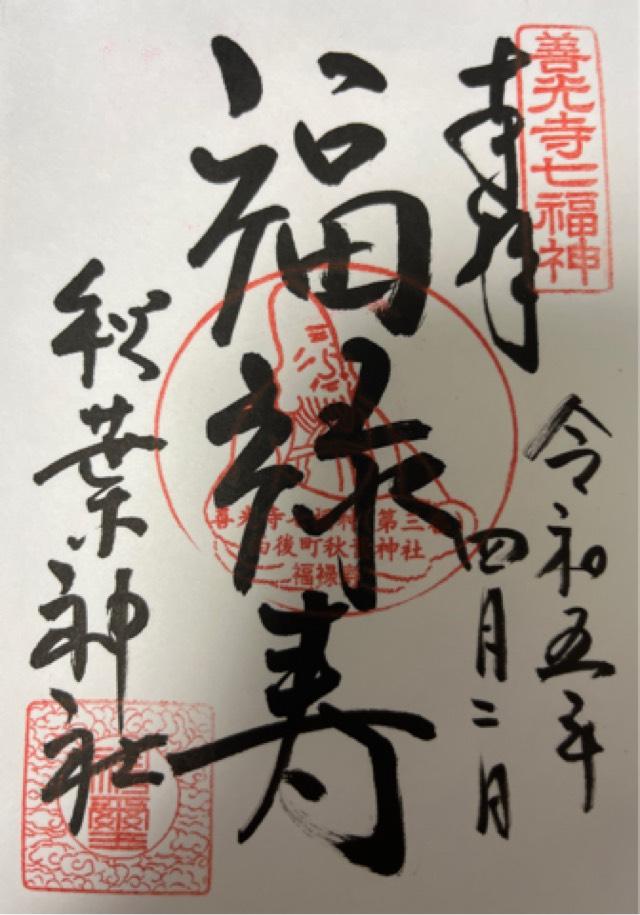 善光寺七福神
奉拝
令和五年
四月二日
福禄寿
善光寺七福神 第三番
西後町秋葉神社
福禄寿
秋葉神社